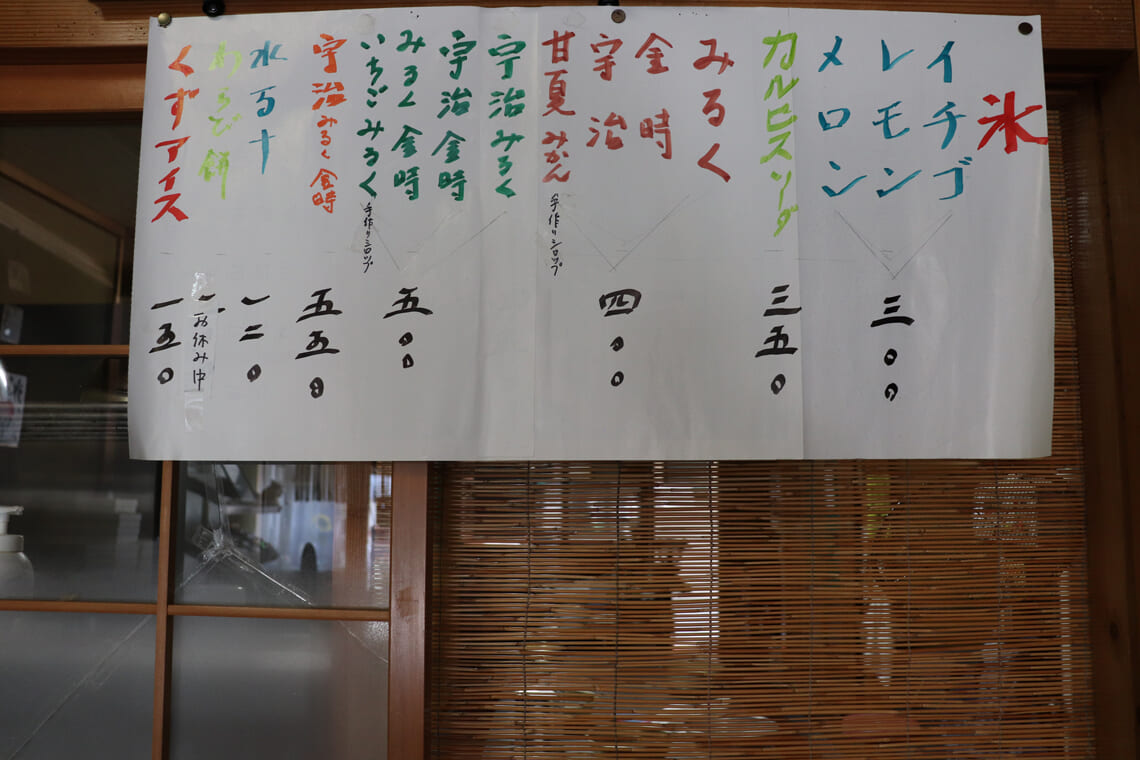 氷
イチゴ
レモン
メロン
三〇〇
カルピスソーダ
三五〇
みるく
金時
宇治
甘夏みかん
手作りシロップ
四〇〇
宇治みるく
宇治金時
みるく金時
いちごみるく
手作りシロップ
五〇〇
宇治みるく金時
五五〇
水る十
一二〇
わらび餅
お休み中
くずアイス
一五〇